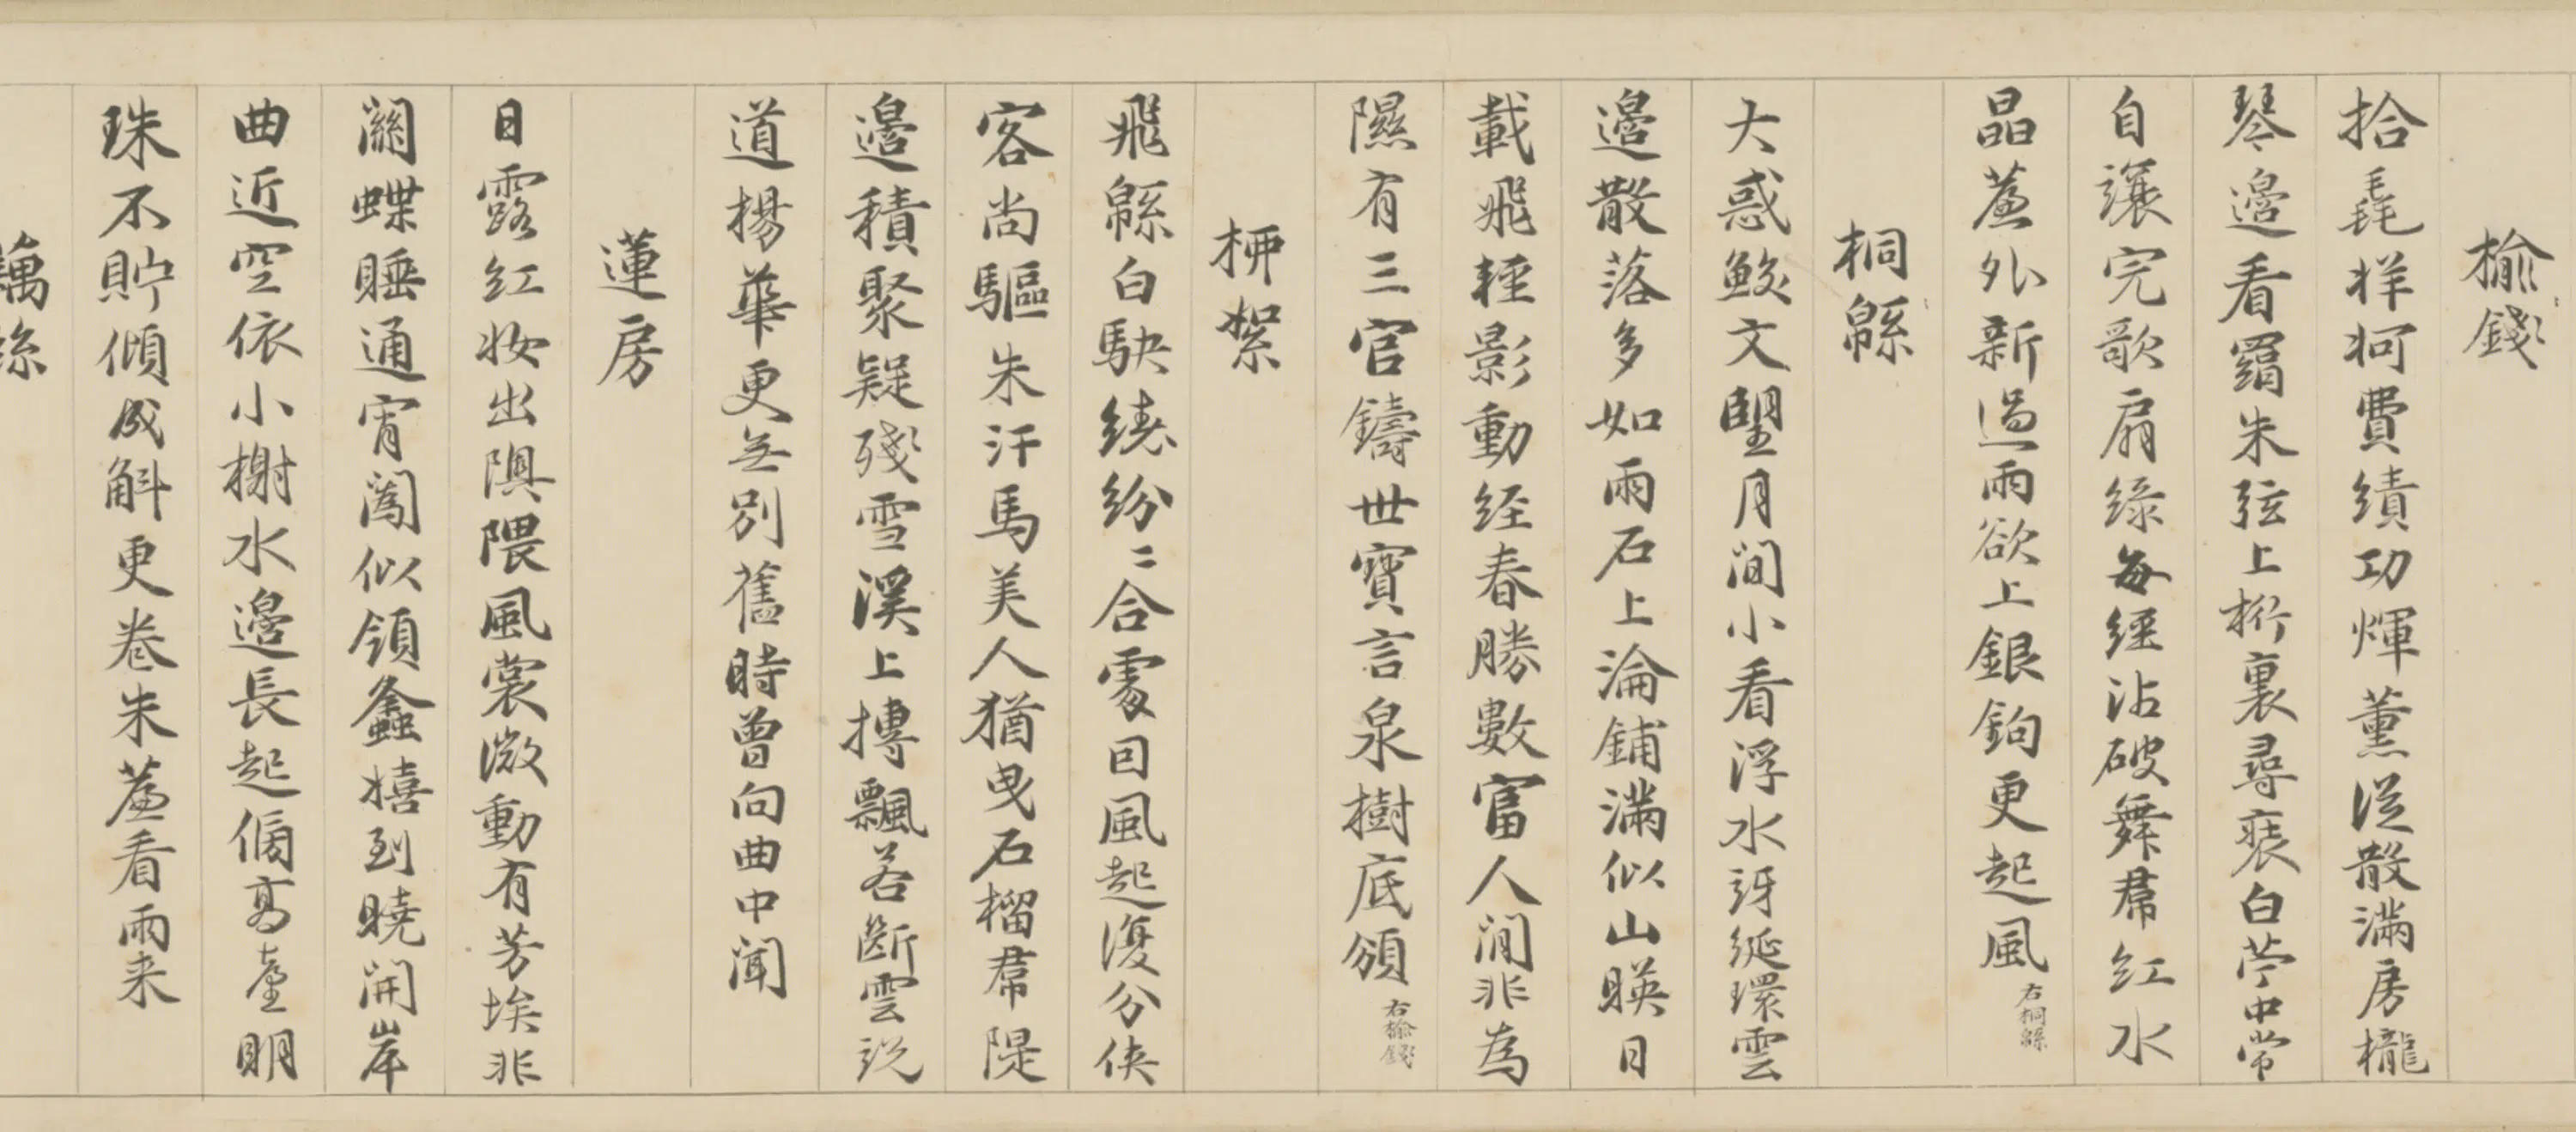 榆錢
拾毳牂牁費績功煇薰從散滿房櫳
琴邊看罥朱弦上桁裏尋裝白苧中常
自讓完歌扇綠每經沾破舞帬紅水
晶簾外新過雨欲上銀鉤更起風右桐緜
桐緜
大惑鮫文朢月間小看浮水訝綖環雲
邊散落多如雨石上淪鋪滿似山暎日
載飛輕影動經春勝數富人間非為
隰有三官鑄世寶言泉樹底頒右榆錢
桺絮
飛緜白駃繞紛二合處回風起復分俠
客尚驅朱汗馬美人猶曳石榴帬隄
邊積聚疑殘雪溪上摶飄若斷雲説
道楊華更無別舊時曾向曲中聞
蓮房
日露紅妝出隩隈風裳微動有芳埃非
關蝶睡通宵闔似領螽嬉到曉開岸
曲近空依小榭水邊長起傷高臺明
珠不貯傾成斛更卷朱簾看雨来
藕絲